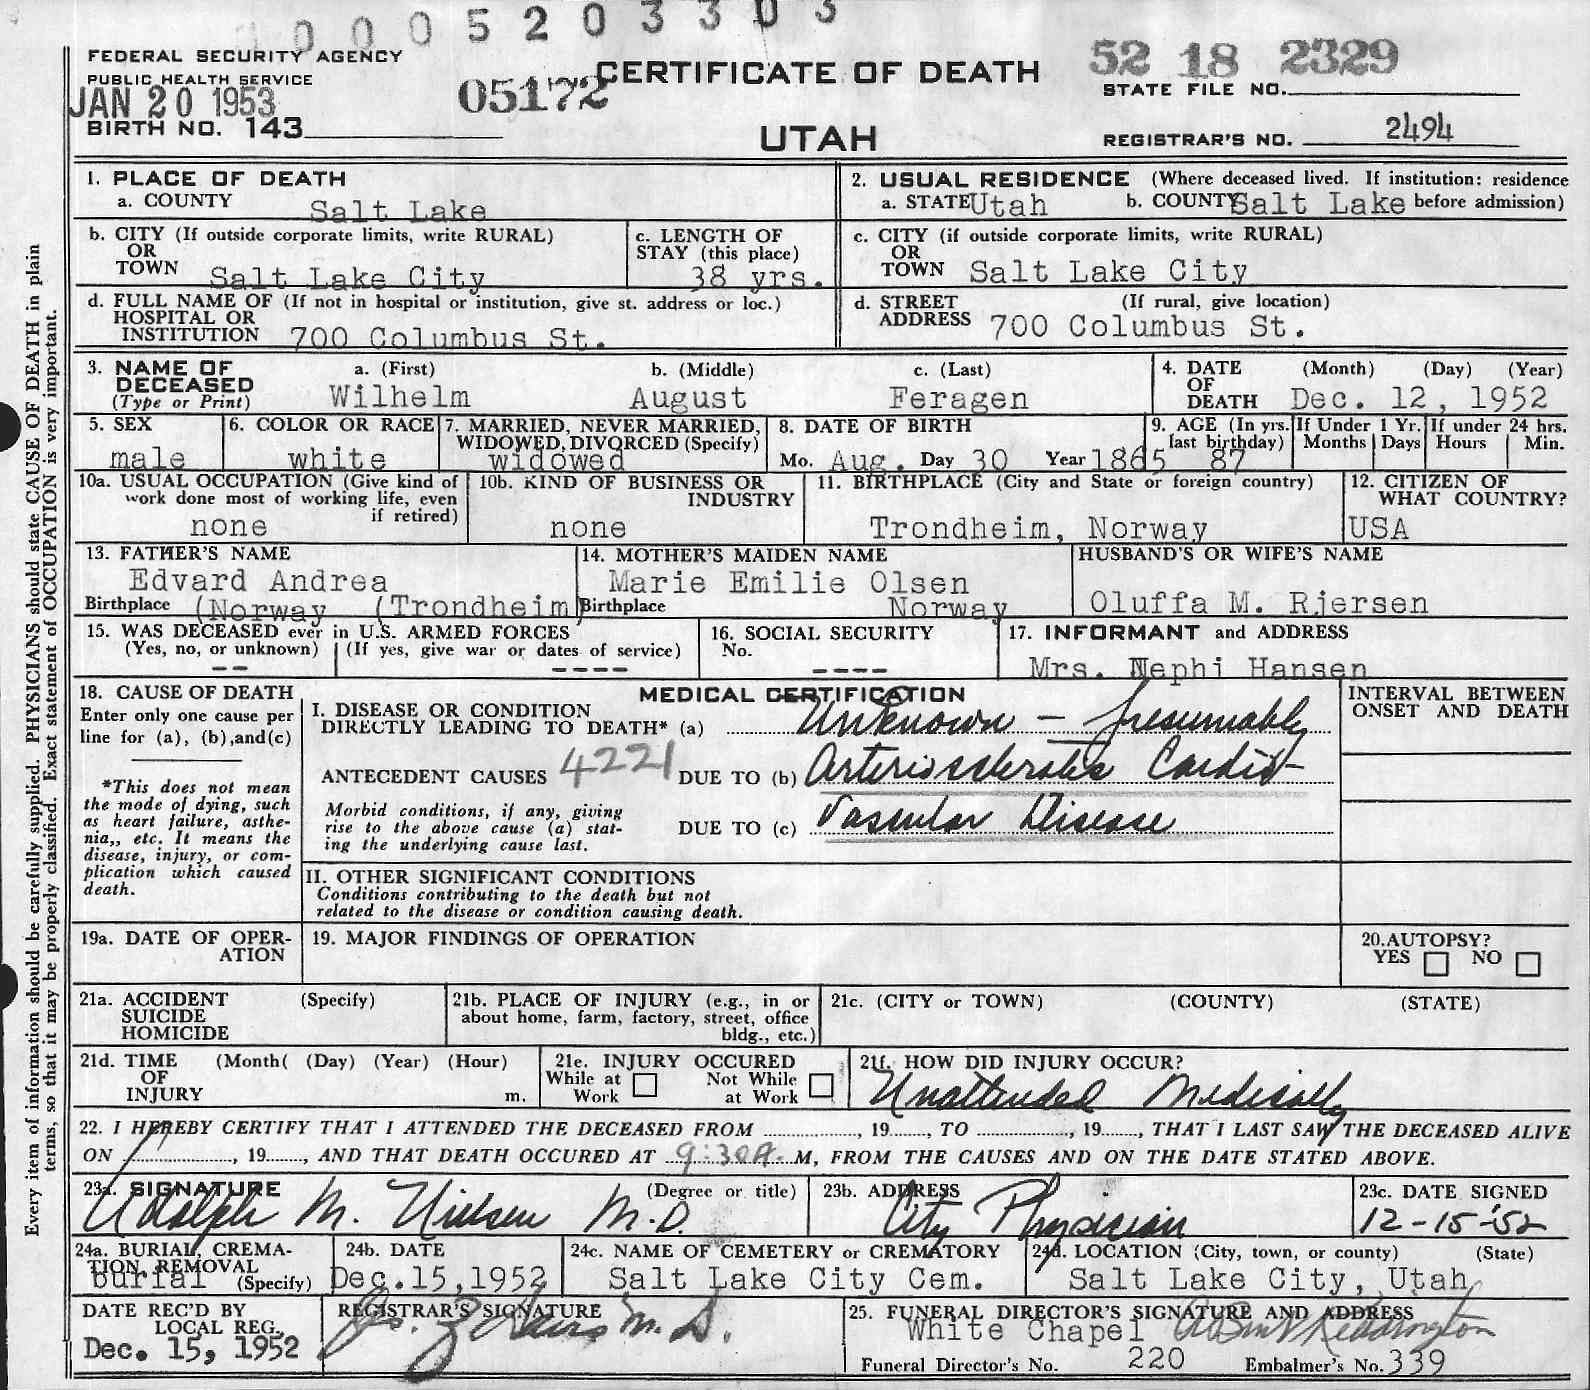 1 0 0 0 5 2 0 3 3 0 3
FEDERAL SECURITY AGENCY
PUBLIC HEALTH SERVICE
JAN 20 1953
BIRTH NO. 143
05172
CERTIFICATE OF DEATH
UTAH
52 18 2329
STATE FILE NO.
REGISTRAR'S NO. 2494
1. PLACE OF DEATH
a. COUNTY Salt Lake
2. USUAL RESIDENCE (Where deceased lived. If institution: residence
a. STATE Utah b. COUNTY Salt Lake before admission)
b. CITY (If outside corporate limits, write RURAL)
OR
TOWN Salt Lake City
c. LENGTH OF
STAY (this place)
38 yrs.
c. CITY (if outside corporate limits, write RURAL)
OR
TOWN Salt Lake City
d. FULL NAME OF (If not in hospital or institution, give st. address or loc.)
HOSPITAL OR
INSTITUTION 700 Columbus St.
d. STREET (If rural, give location)
ADDRESS 700 Columbus St.
3. NAME OF a. (First) b. (Middle) c. (Last)
DECEASED
(Type or Print) Wilhelm August Feragen
4. DATE (Month) (Day) (Year)
OF
DEATH Dec. 12, 1952
5. SEX
male
6. COLOR OR RACE
white
7. MARRIED, NEVER MARRIED,
WIDOWED, DIVORCED (Specify)
widowed
8. DATE OF BIRTH
Mo. Aug. Day 30 Year 1865
9. AGE (In yrs.
last birthday)
87
If Under 1 Yr.
Months Days
If under 24 hrs.
Hours Min.
10a. USUAL OCCUPATION (Give kind of
work done most of working life, even
if retired)
none
10b. KIND OF BUSINESS OR
INDUSTRY
none
11. BIRTHPLACE (City and State or foreign country)
Trondheim, Norway
12. CITIZEN OF
WHAT COUNTRY?
USA
13. FATHER'S NAME
Edvard Andrea
Birthplace (Norway (Trondheim)
14. MOTHER'S MAIDEN NAME
Marie Emilie Olsen
Birthplace Norway
HUSBAND'S OR WIFE'S NAME
Oluffa M. Rjersen
15. WAS DECEASED ever in U.S. ARMED FORCES
(Yes, no, or unknown) (If yes, give war or dates of service)
-- ----
16. SOCIAL SECURITY
No.
----
17. INFORMANT and ADDRESS
Mrs. Nephi Hansen
18. CAUSE OF DEATH
Enter only one cause per
line for (a), (b),and(c)
*This does not mean
the mode of dying, such
as heart failure, asthe-
nia,, etc. It means the
disease, injury, or com-
plication which caused
death.
MEDICAL CERTIFICATION
I. DISEASE OR CONDITION
DIRECTLY LEADING TO DEATH* (a) Unknown - presumably
ANTECEDENT CAUSES 4221 DUE TO (b) Arteriosclerotic Cardio-
Morbid conditions, if any, giving
rise to the above cause (a) stat-
ing the underlying cause last.
DUE TO (c) Vascular Disease
INTERVAL BETWEEN
ONSET AND DEATH
II. OTHER SIGNIFICANT CONDITIONS
Conditions contributing to the death but not
related to the disease or condition causing death.
19a. DATE OF OPER-
ATION
19. MAJOR FINDINGS OF OPERATION
20.AUTOPSY?
YES NO
21a. ACCIDENT (Specify)
SUICIDE
HOMICIDE
21b. PLACE OF INJURY (e.g., in or
about home, farm, factory, street, office
bldg., etc.)
21c. (CITY or TOWN) (COUNTY) (STATE)
21d. TIME (Month( (Day) (Year) (Hour)
OF
INJURY m.
21e. INJURY OCCURED
While at Work Not While at Work
21f. HOW DID INJURY OCCUR?
Unattended Medically
22. I HEREBY CERTIFY THAT I ATTENDED THE DECEASED FROM , 19 , TO , 19 , THAT I LAST SAW THE DECEASED ALIVE
ON , 19 , AND THAT DEATH OCCURED AT 9:30A. M, FROM THE CAUSES AND ON THE DATE STATED ABOVE.
23a. SIGNATURE (Degree or title)
Adolph M. Nielsen M.D.
23b. ADDRESS
City Physician
23c. DATE SIGNED
12-15-'52
24a. BURIAL, CREMA-
TION REMOVAL
burial (Specify)
24b. DATE
Dec.15,1952
24c. NAME OF CEMETERY or CREMATORY
Salt Lake City Cem.
24d. LOCATION (City, town, or county) (State)
Salt Lake City, Utah
DATE REC'D BY
LOCAL REG.
Dec. 15, 1952
REGISTRAR'S SIGNATURE
M.D.
25. FUNERAL DIRECTOR'S SIGNATURE AND ADDRESS
White Chapel
Funeral Director's No. 220 Embalmer's No. 339
Every item of information should be carefully supplied. PHYSICIANS should state CAUSE OF DEATH in plain
terms, so that it may be properly classified. Exact statement of OCCUPATION is very important.